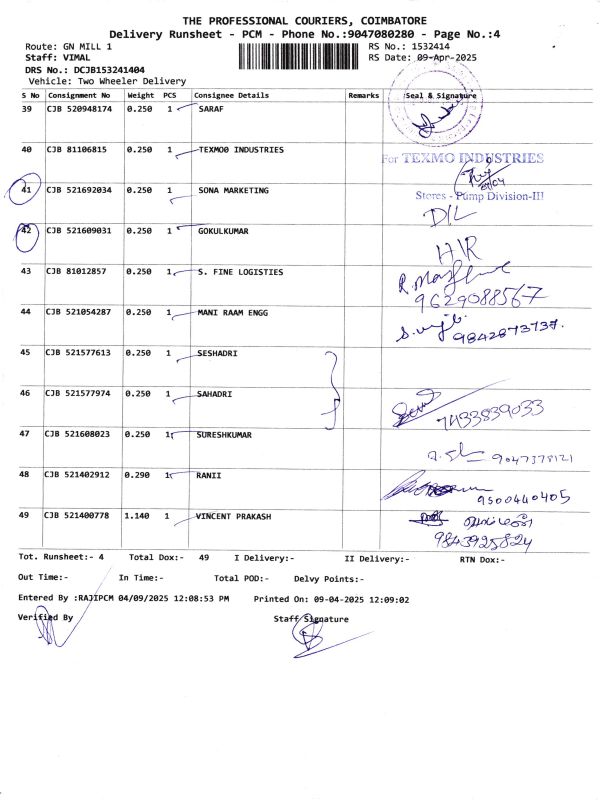 THE PROFESSIONAL COURIERS, COIMBATORE
Delivery Runsheet - PCM - Phone No.:9047080280 - Page No.:4
Route: GN MILL 1 RS No.: 1532414
Staff: VIMAL RS Date: 09-Apr-2025
DRS No.: DCJB153241404
Vehicle: Two Wheeler Delivery
S No Consignment No Weight PCS Consignee Details Remarks Seal & Signature
39 CJB 520948174 0.250 1 SARAF
40 CJB 81106815 0.250 1 TEXMOO INDUSTRIES
For TEXMO INDUSTRIES
Stores - Pump Division-III
41 CJB 521692034 0.250 1 SONA MARKETING
D/L
42 CJB 521609031 0.250 1 GOKULKUMAR
H/R
43 CJB 81012857 0.250 1 S. FINE LOGISTIES
9629088567
44 CJB 521054287 0.250 1 MANI RAAM ENGG
9842873737.
45 CJB 521577613 0.250 1 SESHADRI
46 CJB 521577974 0.250 1 SAHADRI
7433839033
47 CJB 521608023 0.250 1 SURESHKUMAR
9047378121
48 CJB 521402912 0.290 1 RANII
9500440405
49 CJB 521400778 1.140 1 VINCENT PRAKASH
9843925824
Tot. Runsheet:- 4 Total Dox:- 49 I Delivery:- II Delivery:- RTN Dox:-
Out Time:- In Time:- Total POD:- Delvy Points:-
Entered By :RAJIPCM 04/09/2025 12:08:53 PM Printed On: 09-04-2025 12:09:02
Verified By Staff Signature